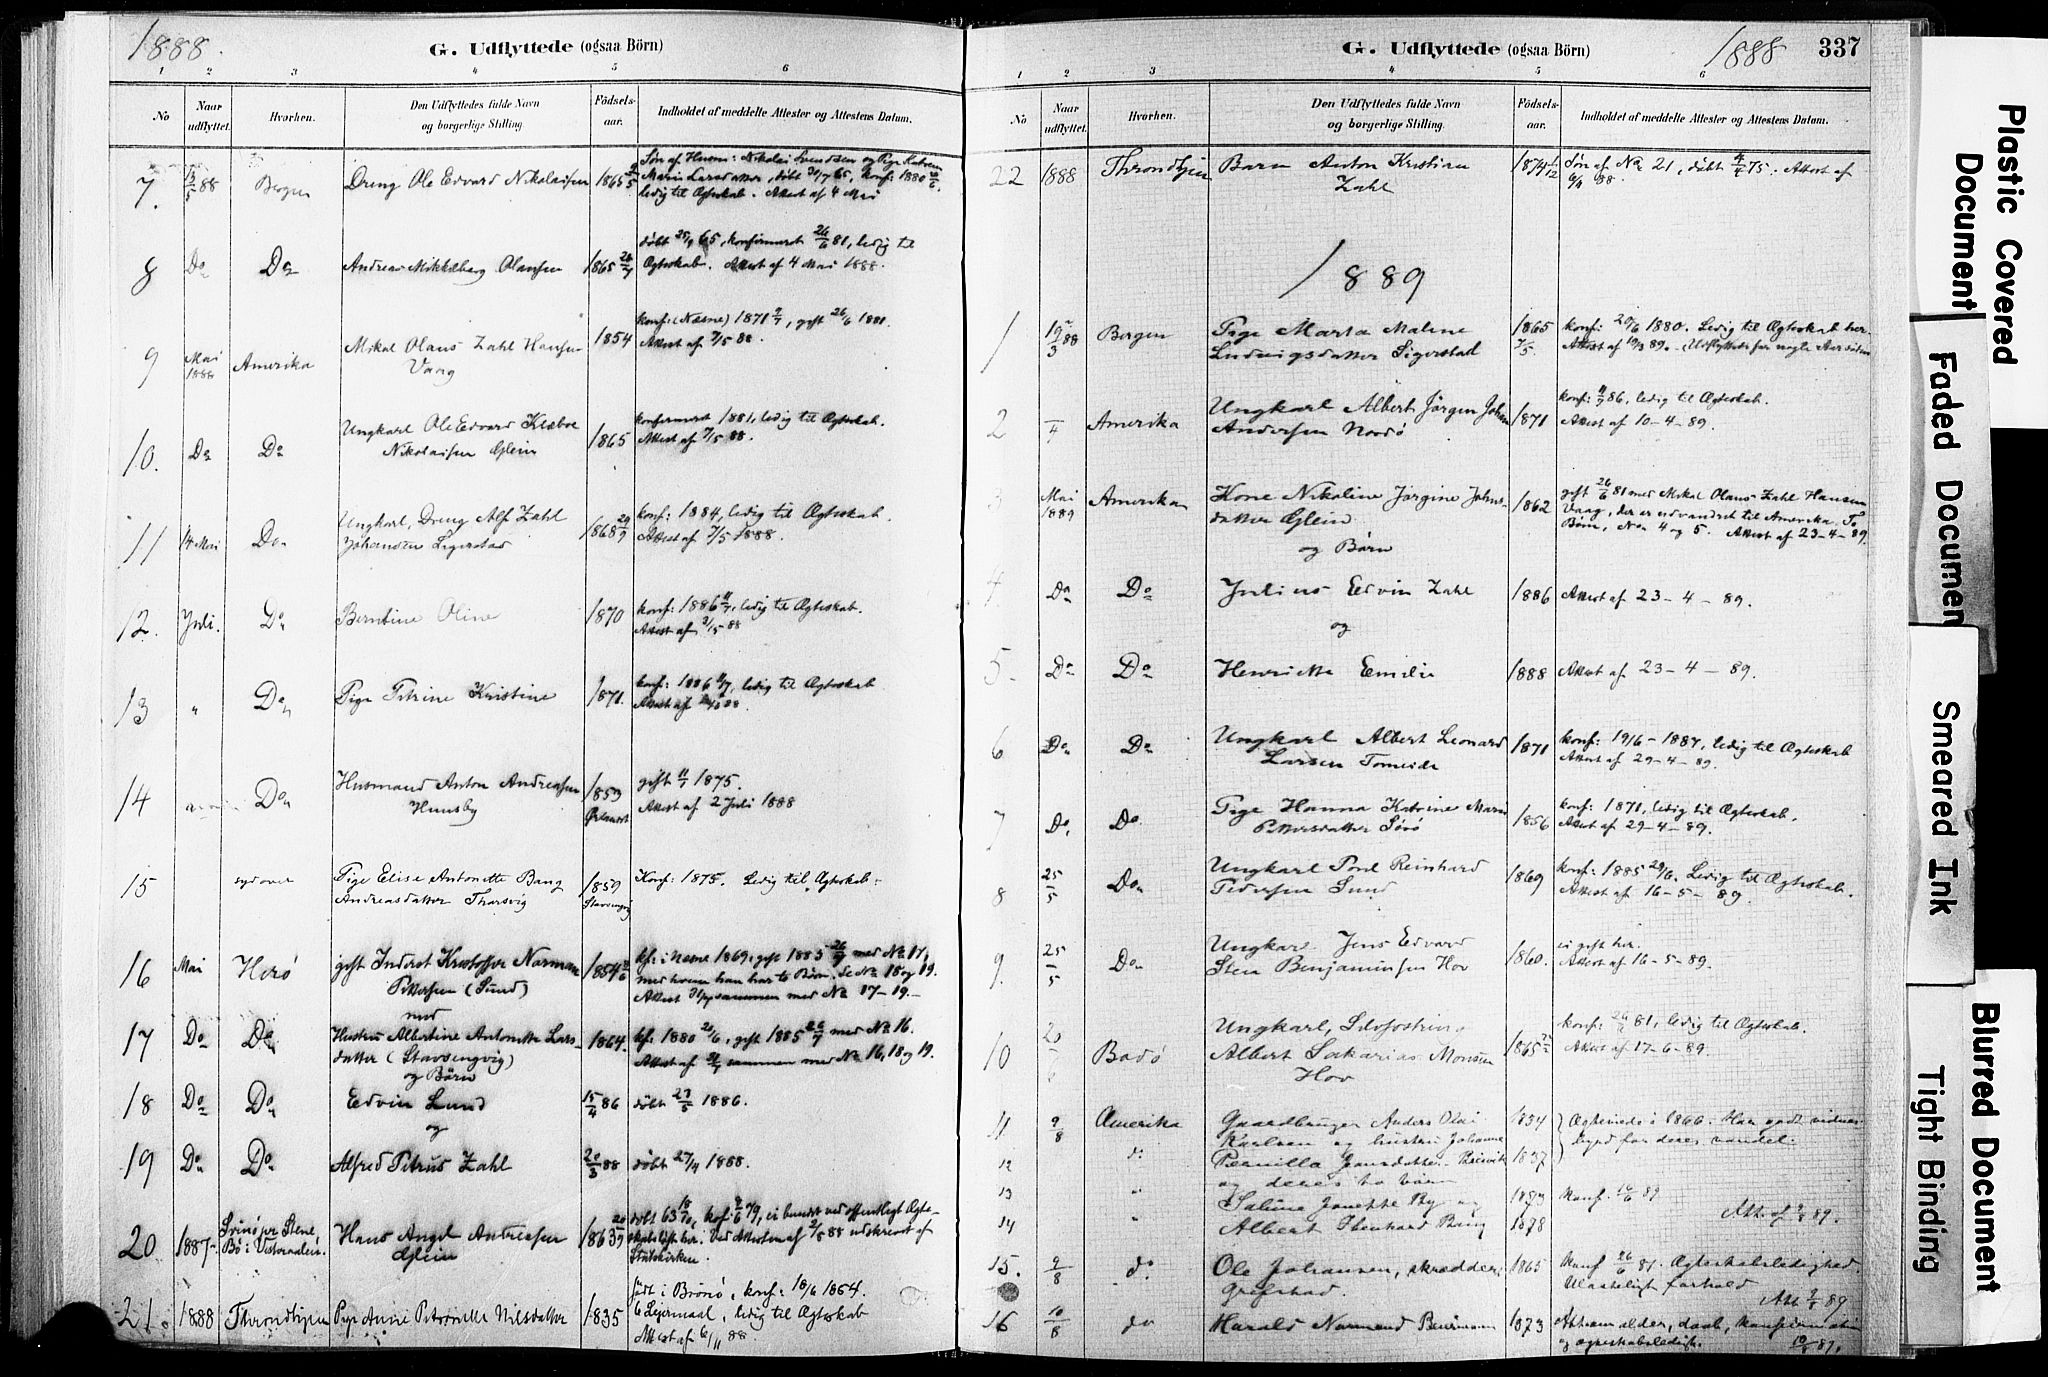 1888.
G. Udflyttede (ogsaa Börn)
1 2 3 4 5 6
No
Naar udflyttet.
Hvorhen.
Den Udflyttedes fulde Navn og borgerlige Stilling
Födsels-aar.
Indholdet af meddelte Attester og Attestens Datum.
7. 13/5 88 Bergen Dreng Ole Edvard Nikolaisen 1865 Søn af Husm: Nikolai Svendsen og Pige
Maria Larsdatter, døbt 30/7 65, konf: 1880
ledig til Ægteskab. Attest af 4 Mai
8 Do Do Andreas Mikkelborg Olausen 1865 døbt 65, konfirmeret 26/6 81, ledig til
Ægteskab. Attest af 4 Mai 1888.
9 Mai 1888 Amerika Mikal Olaus Zahl Hansen 1854 konf: (Næsne) 1871, gift 26/6 1881.
Vaag Attest af 7/5 88.
10. Do Do Ungkarl Ole Edvard Klæboe 1865 konfirmeret 1881, ledig til Ægteskab.
Nikolaisen Glein Attest af 7/5 88.
11 14 Mai Do Ungkarl, Dreng Alf Zahl 1868 29/9 konf: 1884, ledig til Ægteskab.
Johansen Sigerstad Attest af 7/5 1888.
12. Juli. Do Berntine Oline 1870 konf: 1886, ledig til Ægteskab.
Attest af 88
13 " Do Pige Petrine Kristine 1871. konf: 1886, ledig til Ægteskab
Attest af 88
14 Do Husmand Anton Andreasen 1853 gift 1875.
Hunsby Attest af 2 Juli 1888
15 sydover Pige Elise Antonette Bang 1859 Konf: 1875. Ledig til Ægteskab.
Andreasdatter Tharsvig Stavsengvig
16 Mai Herø gift Inderst Kristoffer Norman 1854 kf: i Næsne 1869. gift 1885 26/7 med No 17,
Pettersen (Sund) med hvem han har to Børn. Se No 18 og 19.
med Attest sammen med No 17-19.
17 Do Do Hustru Albertine Antonette Lars- 1864. kf: 1880, gift 1885 26/7 med No 16.
datter (Stavsengvig) Attest af sammen med No 16, 18 og 19.
og Børn
18 Do Do Edvin Lund 15/4 86 døbt 23/5 1886.
og
19 Do Do Alfred Petrus Zahl 20/3 88 døbt 27/4 1888.
20. 1887 Bø i Vesteraalen. Hans Angel Andreasen 1863 døbt 63, kof: 79, ei bundet ved offentligt Ægte-
Glein skabsløfte her. Ved Attesten af 88 udskrevet af
Statskirken.
21. 1888 Throndhjem Pige Anne Petronelle Nilsdatter 1835 født i Brønø, konf: 18/6 1854.
6 Leiermaal, ledig til Ægteskab
Attest af 6/11 88
G. Udflyttede (ogsaa Börn)
1888
337
1 2 3 4 5 6
No
Naar udflyttet.
Hvorhen.
Den Udflyttedes fulde Navn og borgerlige Stilling.
Födsels-aar.
Indholdet af meddelte Attester og Attestens Datum.
22 1888 Throndhjem Barn Anton Kristian 1874 Søn af No 21, døbt 4/4 75. Attest af
Zahl 88.
1889
1 Bergen Pige Marta Maline 1865 konf: 20/6 1880. Ledig til Ægteskab her.
Ludvigsdatter Sigerstad 7/5. Attest af 19/3 89. (Udflyttede for nogle Aar siden
2 4 Amerika Ungkarl Albert Jørgen Johan 1871 konf: 86, ledig til Ægteskab.
Andersen Nordø Attest af 10-4-89.
3 Mai 1889 Amerika Kone Nikoline Jørgine Johns- 1862 gift 26/6 81 med Mikal Olaus Zahl Hansen
datter Glein Vaag, der er udvandret til Amerika. To
og Børn Børn, No 4 og 5. Attest af 23-4-89.
4. Do Do Julius Edvin Zahl 1886 Attest af 23-4-89.
og
5. Do Do Henriette Emilie 1888 Attest af 23-4-89.
6 Do Do Ungkarl Albert Leonard 1871 konf: 19/6-1887, ledig til Ægteskab
Larsen Tomeide Attest af 29-4-89.
7 Do, Do. Pige Hanna Katrine Marie 1856 konf: 1871, ledig til Ægteskab.
Pettersdatter Sørø Attest af 29-4-89.
8 25/5 Do Ungkarl Povl Reinhard 1869 konf: 1885. Ledig til Ægteskab.
Pedersen Sund Attest af 16-5-89.
9. 25/5 Do Ungkarl Jens Edvard 1860. ei gift her.
Sten Benjaminsen Hov Attest af 16-5-89.
10 20 Bodø Ungkarl, 1865 konf: 81, ledig til Ægteskab.
Albert Sakarias Monsen Attest af 17-6-89.
Hov
11 9/8 Amerika Gaardbruger Anders Olai 1834 Ægteviede i 1866. Har godt vidnes-
Karlsen og hustru Johanne byrd for deres vandel.
12 do Pernilla Jonsdatter 1837
og deres to børn
13 " Saline Jonette og Konf. 89
14 " Albert Bang 1878 Att. af 89.
15. 9/8 do Ole Johansen, skrædder, 1865 Konf 26/6 81. Ægteskabsledighed.
Grefstad Ulasteligt forhold
Att 89
16 10/8 do Harald Normand 1873 Att om alder, daab, konfirmation
og ægteskabsledigh. 89.
Plastic Covered Document
Faded Document
Smeared Ink
Blurred Document
Tight Binding